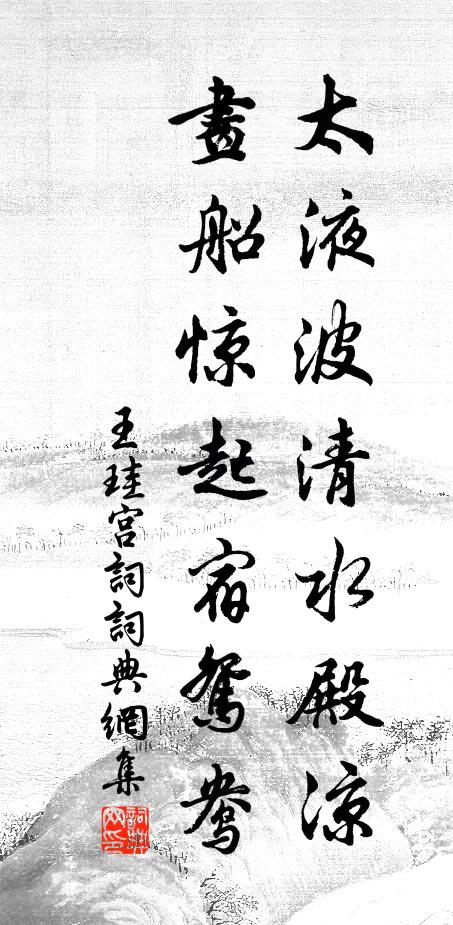 太液波清水殿涼
畫船惊起宿鴛鴦
王珪宫詞詞典網集